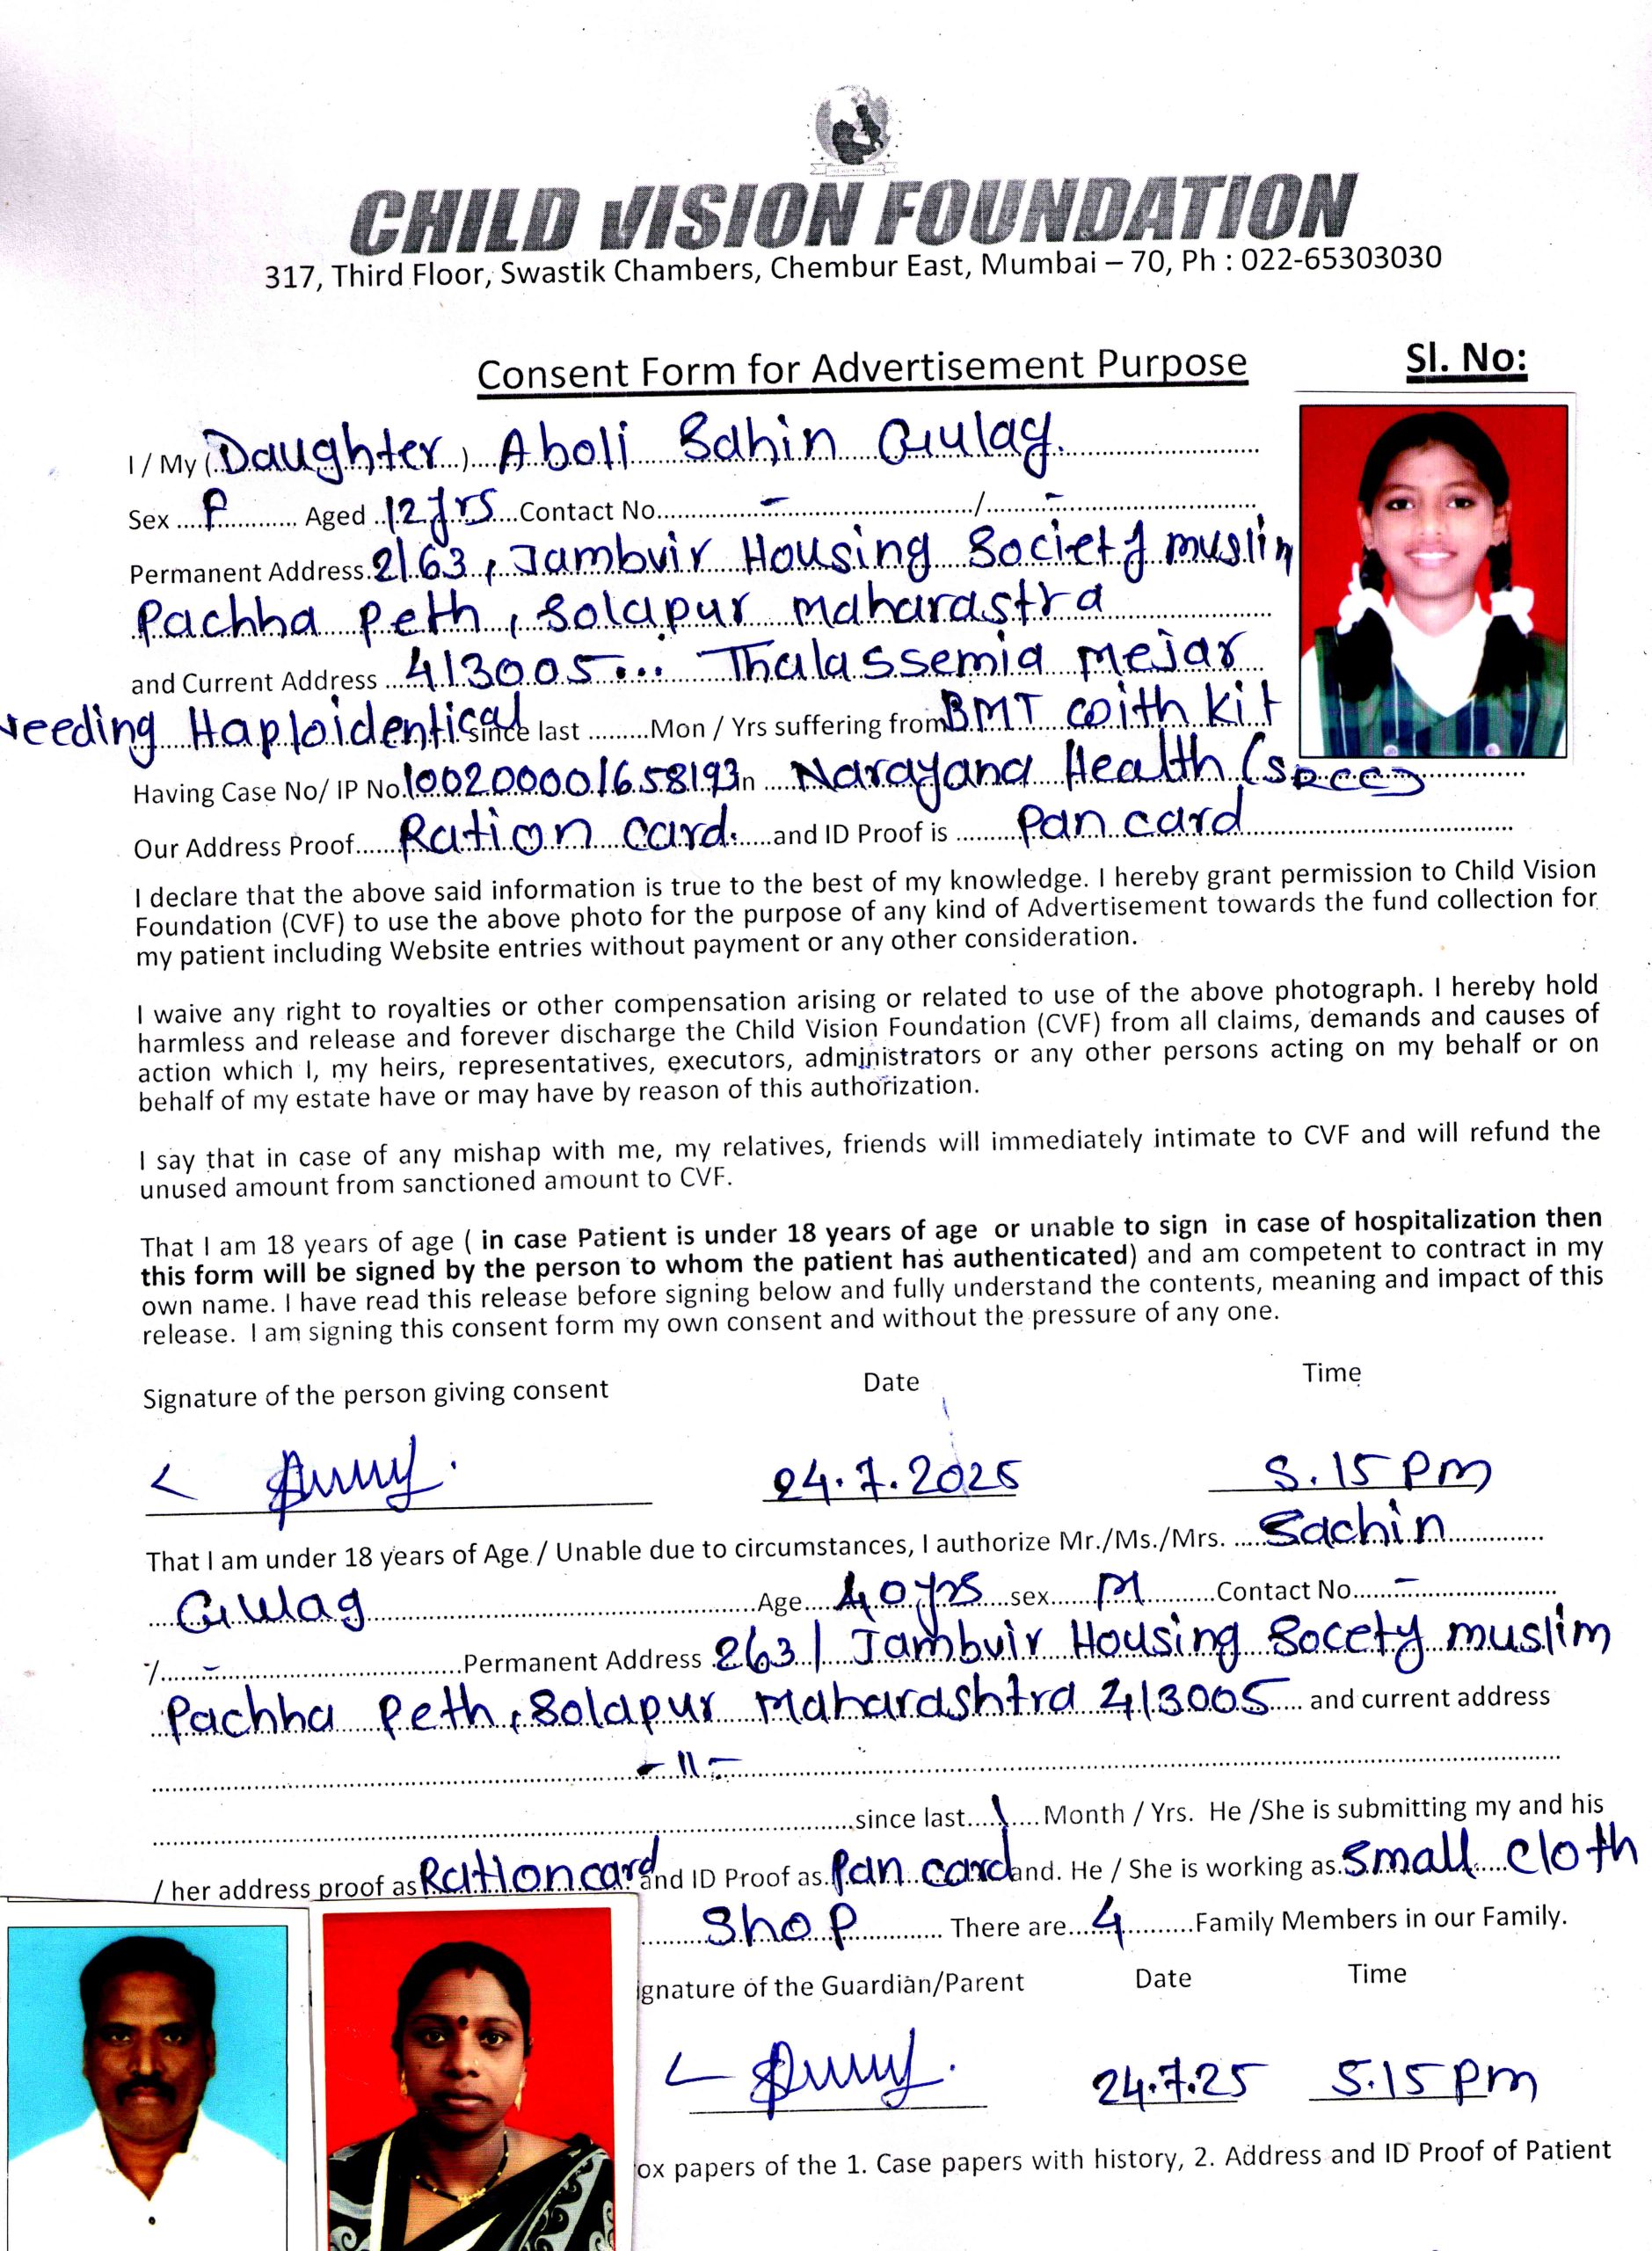 CHILD VISION FOUNDATION
317, Third Floor, Swastik Chambers, Chembur East, Mumbai – 70, Ph : 022-65303030
Consent Form for Advertisement Purpose
Sl. No:
I / My (Daughter) Aboli Sahin Gulag.
Sex F Aged 12 yrs Contact No. - / -
Permanent Address 2/63, Jambvir Housing Society muslim
Pachha Peth, Solapur maharastra
and Current Address 413005... Thalassemia mejar
needing Haploidentical since last ......... Mon / Yrs suffering from BMT with kit
Having Case No/ IP No. 100200001658193 in Narayana Health (SRCC)
Our Address Proof Ration card. and ID Proof is Pan card
I declare that the above said information is true to the best of my knowledge. I hereby grant permission to Child Vision
Foundation (CVF) to use the above photo for the purpose of any kind of Advertisement towards the fund collection for
my patient including Website entries without payment or any other consideration.
I waive any right to royalties or other compensation arising or related to use of the above photograph. I hereby hold
harmless and release and forever discharge the Child Vision Foundation (CVF) from all claims, demands and causes of
action which I, my heirs, representatives, executors, administrators or any other persons acting on my behalf or on
behalf of my estate have or may have by reason of this authorization.
I say that in case of any mishap with me, my relatives, friends will immediately intimate to CVF and will refund the
unused amount from sanctioned amount to CVF.
That I am 18 years of age ( in case Patient is under 18 years of age or unable to sign in case of hospitalization then
this form will be signed by the person to whom the patient has authenticated) and am competent to contract in my
own name. I have read this release before signing below and fully understand the contents, meaning and impact of this
release. I am signing this consent form my own consent and without the pressure of any one.
Signature of the person giving consent Date Time
24.7.2025 5.15 Pm
That I am under 18 years of Age / Unable due to circumstances, I authorize Mr./Ms./Mrs. Sachin
Gulag Age 40 yrs sex M Contact No. -
/ - Permanent Address 263/ Jambvir Housing Socety muslim
Pachha Peth, Solapur Maharashtra 413005 and current address
-11-
since last 1 Month / Yrs. He /She is submitting my and his
/ her address proof as Ration card and ID Proof as Pan card and. He / She is working as Small cloth
Shop There are 4 Family Members in our Family.
ignature of the Guardian/Parent Date Time
24.7.25 5.15 Pm
ox papers of the 1. Case papers with history, 2. Address and ID Proof of Patient